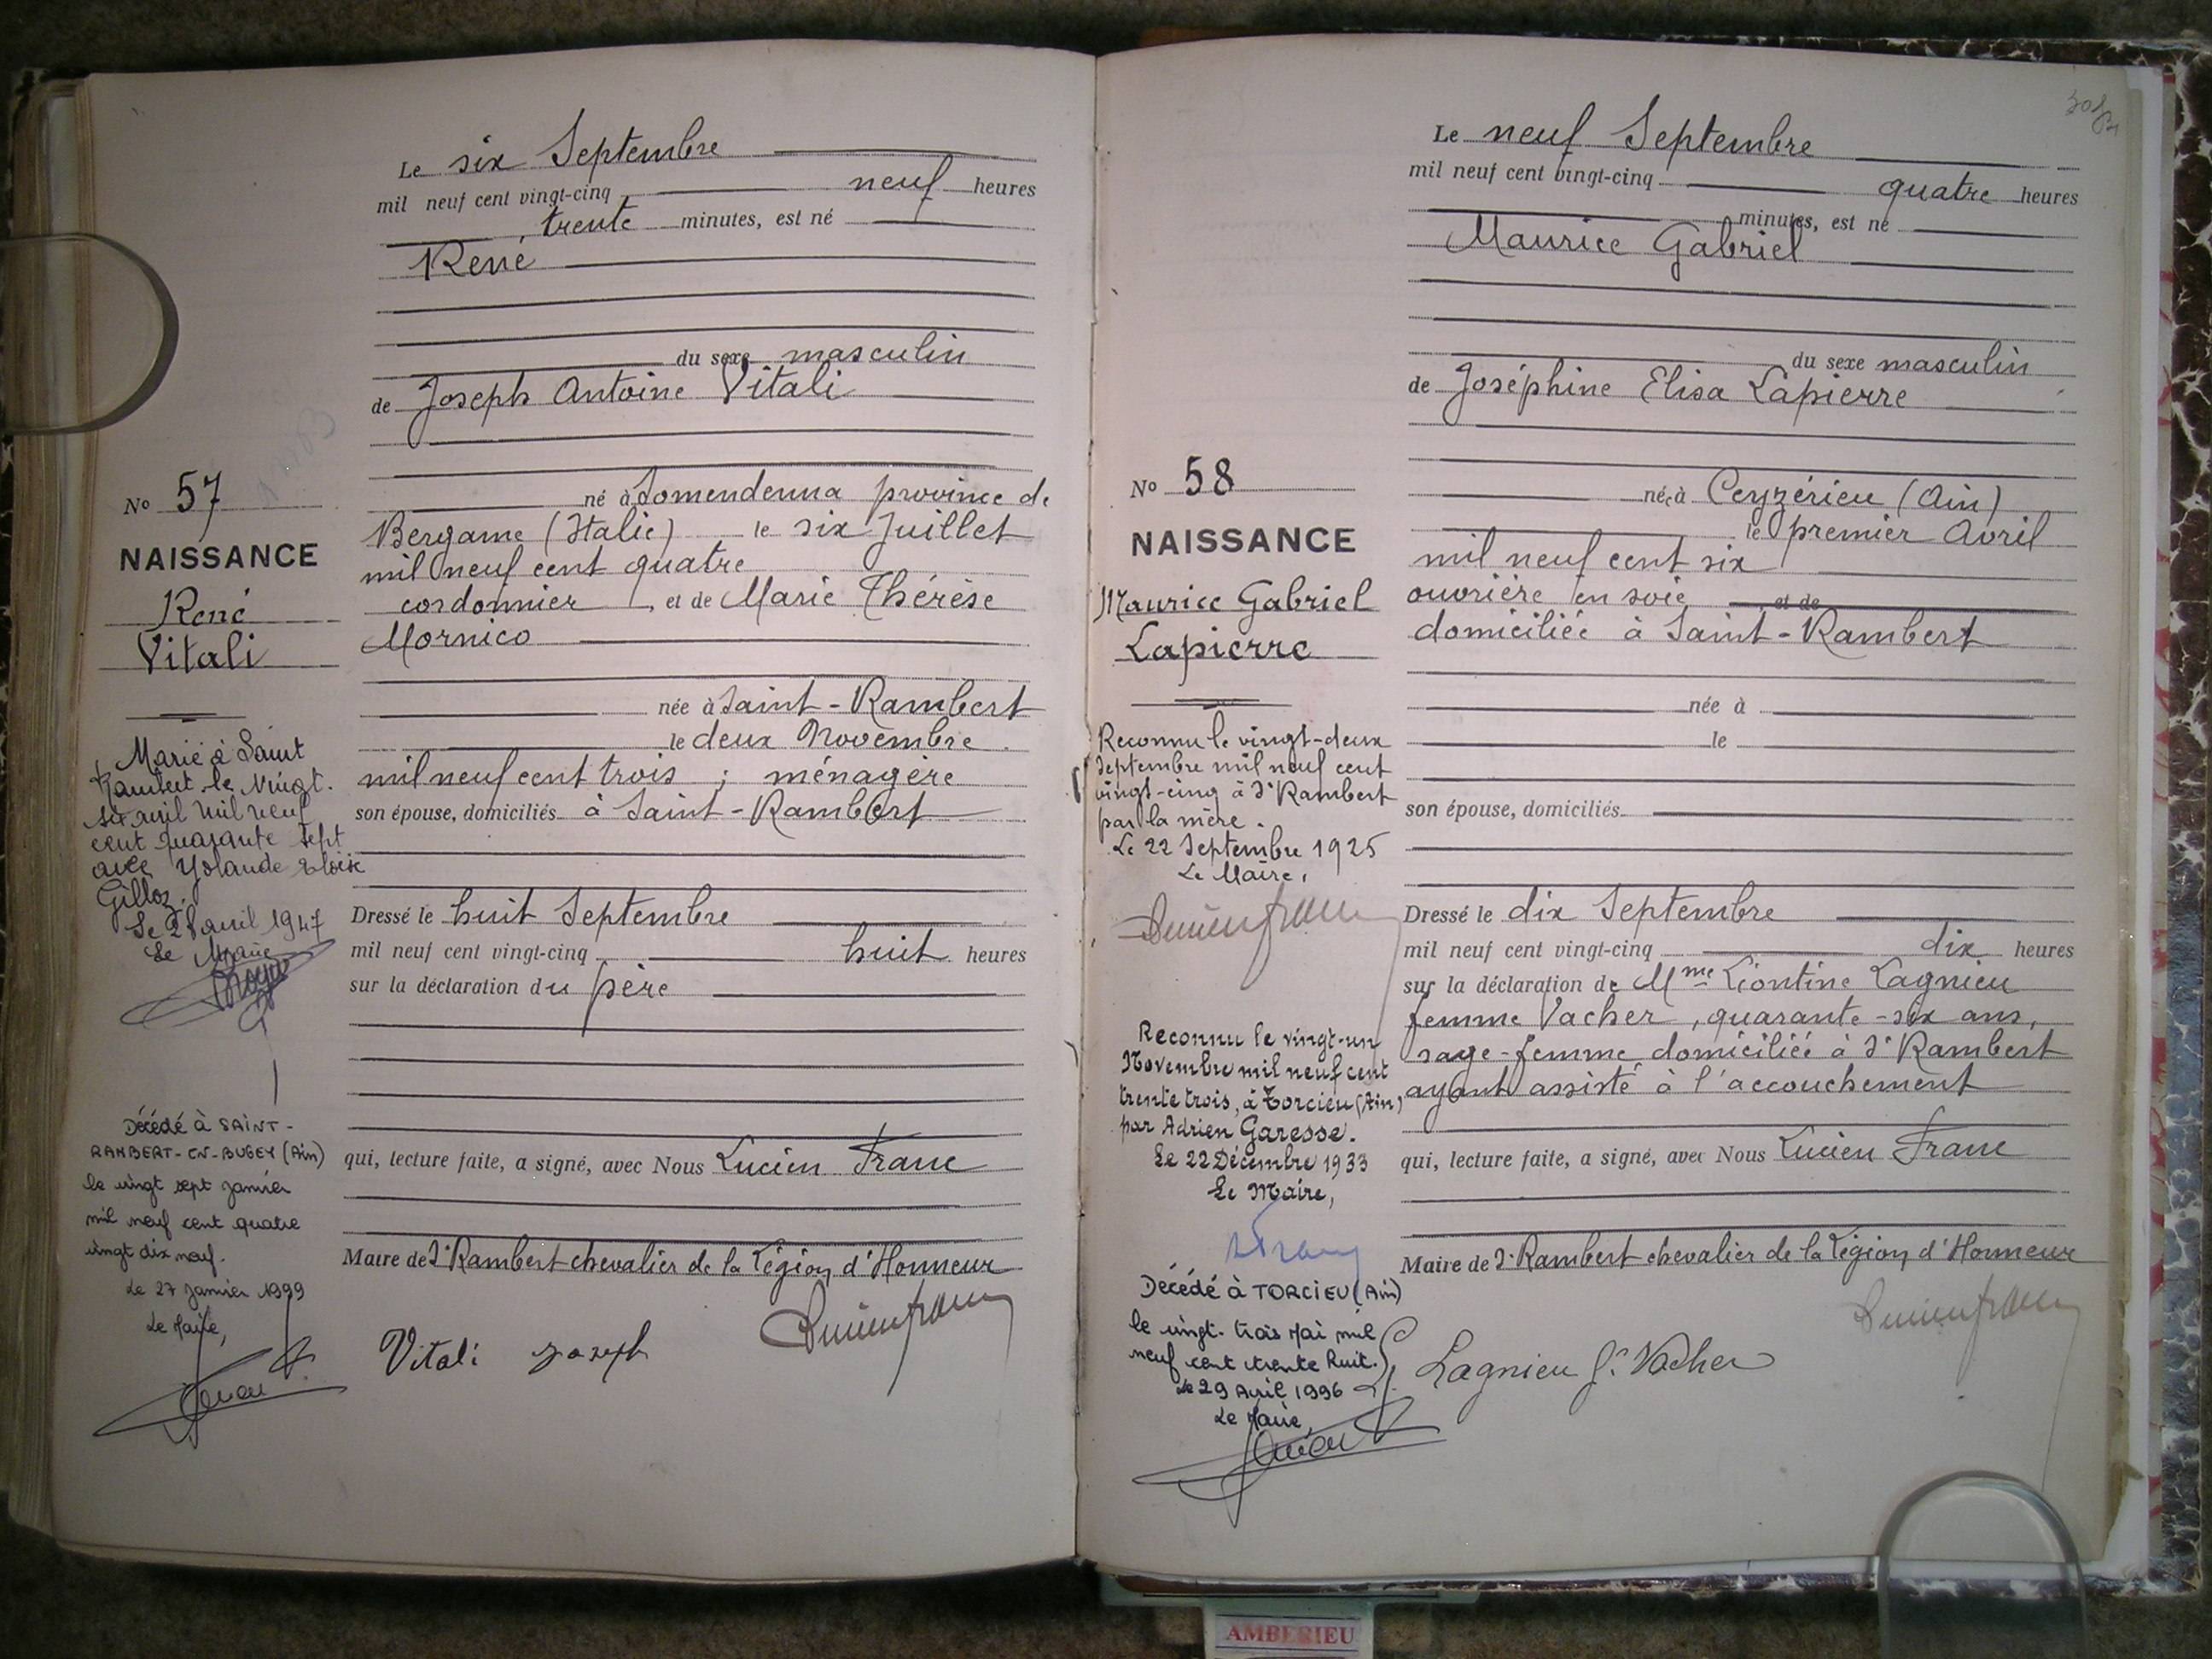 Le six Septembre
mil neuf cent vingt-cinq, neuf heures
trente minutes, est né
René
du sexe masculin
de Joseph Antoine Vitali
né à Somendenna province de
Bergame (Italie) le six Juillet
mil neuf cent quatre
cordonnier, et de Marie Thérèse
Mornico
née à Saint-Rambert
le deux Novembre
mil neuf cent trois ; ménagère
son épouse, domiciliés à Saint-Rambert
Dressé le huit Septembre
mil neuf cent vingt-cinq, huit heures
sur la déclaration du père
qui, lecture faite, a signé, avec Nous Lucien Franc
Maire de St Rambert chevalier de la Légion d'Honneur
Vitali Joseph
No 57
NAISSANCE
René
Vitali
Marié à Saint
Rambert le Vingt-
six avril mil neuf
cent quarante sept
avec Yolande Eloïse
Gilloz.
Le 28 avril 1947
Le Maire
Décédé à SAINT-
RAMBERT-EN-BUGEY (Ain)
le vingt sept janvier
mil neuf cent quatre
vingt dix neuf.
Le 27 janvier 1999
Le Maire,
Le neuf Septembre
mil neuf cent vingt-cinq quatre heures
minutes, est né
Maurice Gabriel
du sexe masculin
de Joséphine Elisa Lapierre
née à Ceyzérieu (Ain)
le premier Avril
mil neuf cent six
ouvrière en soie, et de
domiciliée à Saint-Rambert
née à
le
son épouse, domiciliés
Dressé le dix Septembre
mil neuf cent vingt-cinq dix heures
sur la déclaration de Mme Léontine Lagnieu
femme Vacher, quarante-six ans,
sage-femme domiciliée à St Rambert
ayant assisté à l'accouchement
qui, lecture faite, a signé, avec Nous Lucien Franc
Maire de St Rambert chevalier de la Légion d'Honneur
Lagnieu f. Vacher
No 58
NAISSANCE
Maurice Gabriel
Lapierre
Reconnu le vingt-deux
Septembre mil neuf cent
vingt-cinq à St Rambert
par la mère.
Le 22 Septembre 1925
Le Maire,
Reconnu le vingt-un
Novembre mil neuf cent
trente trois, à Torcieu (Ain)
par Adrien Garesse.
Le 22 Décembre 1933
Le Maire,
Décédé à TORCIEU (Ain)
le vingt-trois Mai mil
neuf cent trente huit.
Le 29 Avril 1996
Le Maire,
AMBERIEU